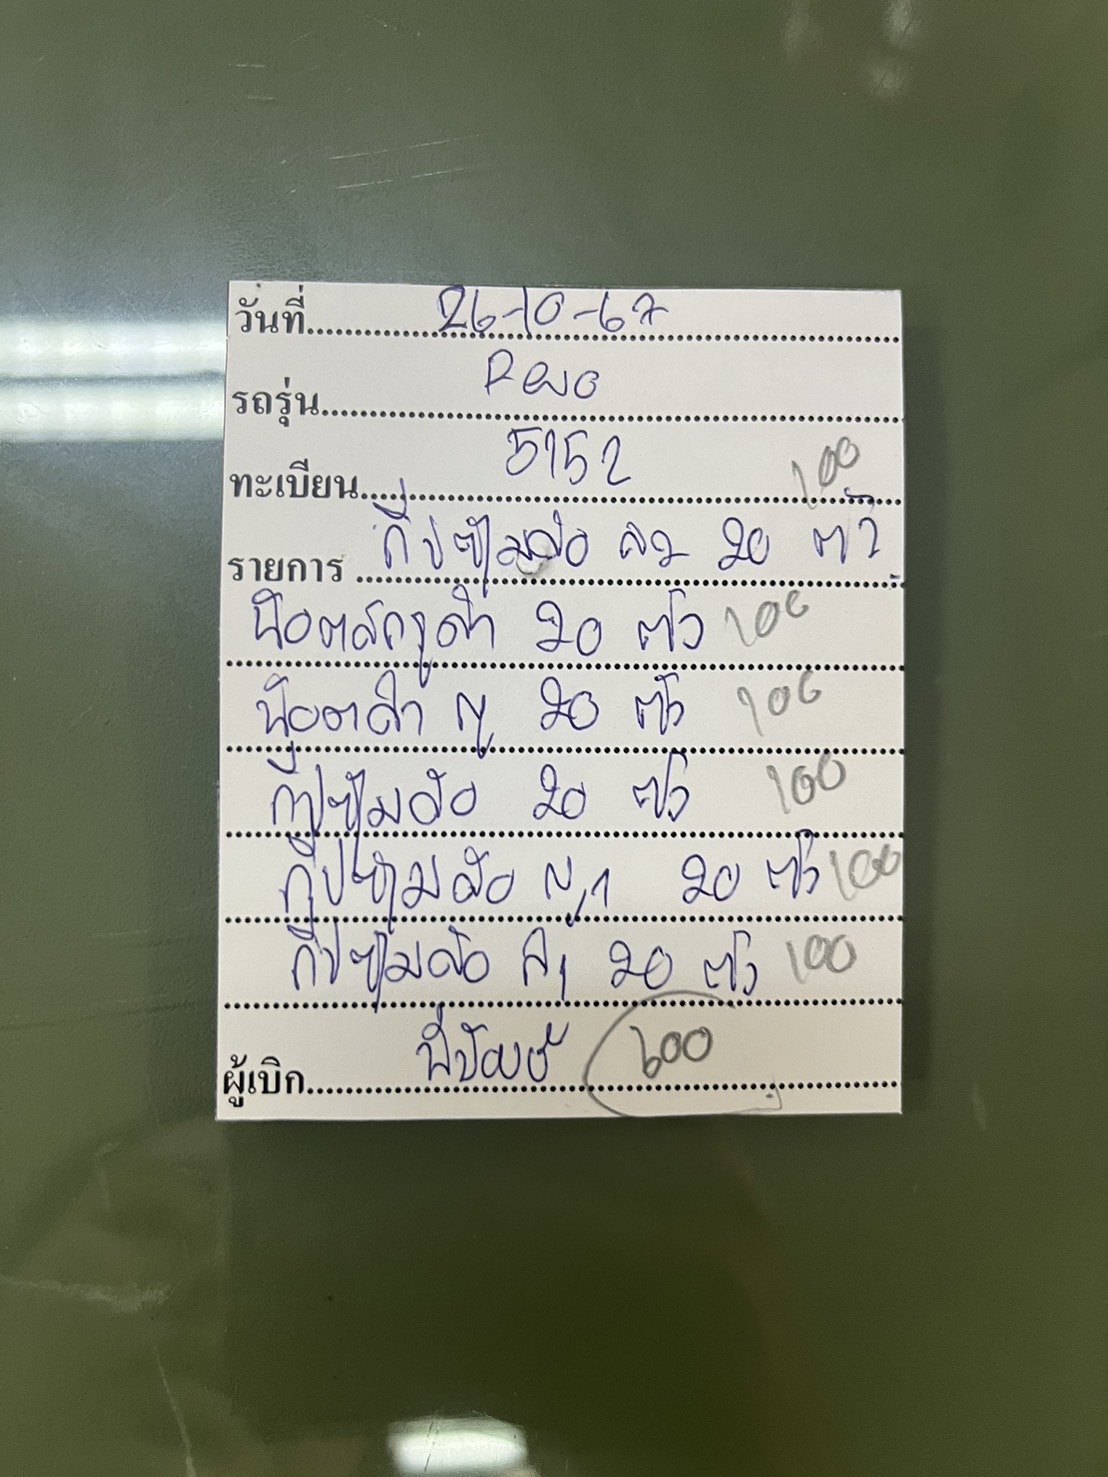 วันที่ 26-10-67
รถรุ่น Revo
ทะเบียน 5152
100
รายการ กิ๊ปซุ้มล้อ 20 ตัว
น๊อตสกรูดำ 20 ตัว 100
น๊อตดำ 20 ตัว 100
กิ๊ปซุ้มล้อ 20 ตัว 100
กิ๊ปซุ้มล้อ 20 ตัว 100
กิ๊ปซุ้มล้อ 20 ตัว 100
ผู้เบิก 600